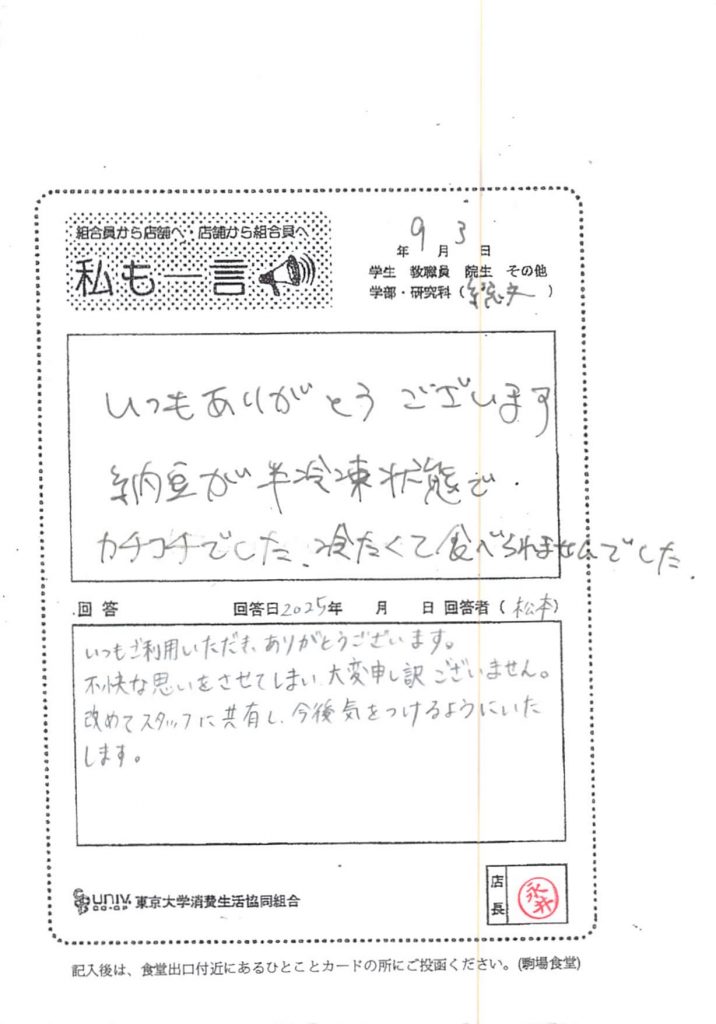 組合員から店舗へ・店舗から組合員へ
私も一言
9 3
年 月 日
学生 教職員 院生 その他
学部・研究科（総文）
いつもありがとうございます
納豆が半冷凍状態で、
カチコチでした、冷たくて食べられませんでした。
回答 回答日2025年 月 日 回答者（松本）
いつもご利用いただき、ありがとうございます。
不快な思いをさせてしまい、大変申し訳ございません。
改めてスタッフに共有し、今後気をつけるようにいた
します。
univ. CO-OP 東京大学消費生活協同組合
店長
記入後は、食堂出口付近にあるひとことカードの所にご投函ください。(駒場食堂)